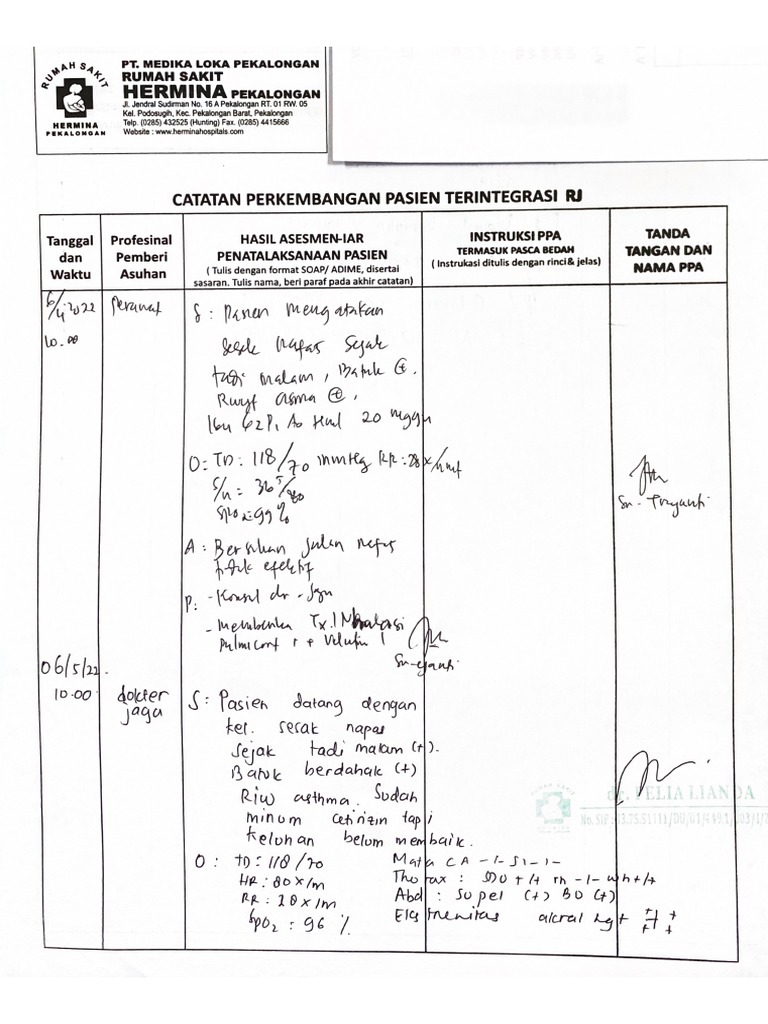 RUMAH SAKIT
HERMINA
PEKALONGAN
PT. MEDIKA LOKA PEKALONGAN
RUMAH SAKIT
HERMINA PEKALONGAN
Jl. Jendral Sudirman No. 16 A Pekalongan RT. 01 RW. 05
Kel. Podosugih, Kec. Pekalongan Barat, Pekalongan
Telp. (0285) 432525 (Hunting) Fax. (0285) 4415666
Website : www.herminahospitals.com
CATATAN PERKEMBANGAN PASIEN TERINTEGRASI RJ
Tanggal dan Waktu
Profesinal Pemberi Asuhan
HASIL ASESMEN-IAR
PENATALAKSANAAN PASIEN
( Tulis dengan format SOAP/ ADIME, disertai
sasaran. Tulis nama, beri paraf pada akhir catatan)
INSTRUKSI PPA
TERMASUK PASCA BEDAH
( Instrukasi ditulis dengan rinci & jelas)
TANDA
TANGAN DAN
NAMA PPA
10.00
Perawat
S : Pasien mengatakan
sesak nafas sejak
tadi malam, Batuk (+).
asma (+),
Ibu G2P1 A0 Hml 20 mggu
O : TD : 118/70 mmHg RR : 28x/mnt
S/N = 36⁵/80
SPO2 = 99%
A : Bersihan jalan nafas
tidak efektif
P : - Konsul dr
- Memberikan Tx. INhalasi
Pulmicort 1 + Velutin 1
06/5/22.
10.00
dokter
jaga
S : Pasien datang dengan
kel. sesak napas
sejak tadi malam (+).
Batuk berdahak (+)
Riw asthma. Sudah
minum cetirizin tapi
keluhan belum membaik.
O : TD = 118/70 Mata CA -/- SI -/-
HR : 80 x/m Thorax : SDV +/+ rh -/- wh +/+
RR : 28 x/m Abd : Supel (+) BU (+)
SpO2 : 96 % akral hgt + + + +
RUMAH SAKIT
LIANDA
No. SIP :